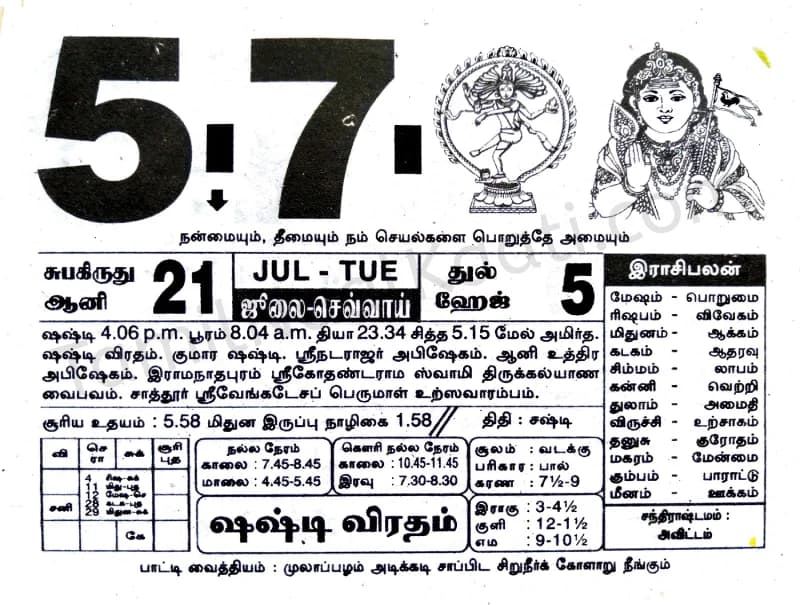 5.7.
நன்மையும், தீமையும் நம் செயல்களை பொறுத்தே அமையும்
சுபகிருது
ஆனி
21
JUL - TUE
ஜூலை-செவ்வாய்
துல்
ஹேஜ்
5
ஷஷ்டி 4.06 p.m. பூரம் 8.04 a.m. தியா 23.34 சித்த 5.15 மேல் அமிர்த.
ஷஷ்டி விரதம். குமார ஷஷ்டி. ஸ்ரீநடராஜர் அபிஷேகம். ஆனி உத்திர
அபிஷேகம். இராமநாதபுரம் ஸ்ரீகோதண்டராம ஸ்வாமி திருக்கல்யாண
வைபவம். சாத்தூர் ஸ்ரீவேங்கடேசப் பெருமாள் உற்ஸவாரம்பம்.
சூரிய உதயம் : 5.58 மிதுன இருப்பு நாழிகை 1.58 // திதி : சஷ்டி
வி
செ
ரா
சுக்
சூரி
புத
4 ரிஷ-சுக்
11 மிது-புத
12 மேஷ-செ
28 கடக-புத
29 மிதுன-சுக்
சனி
கே
நல்ல நேரம்
காலை : 7.45-8.45
மாலை : 4.45-5.45
கௌரி நல்ல நேரம்
காலை : 10.45-11.45
இரவு : 7.30-8.30
ஷஷ்டி விரதம்
சூலம் : வடக்கு
பரிகார : பால்
கரண : 7½-9
இராகு : 3-4½
குளி : 12-1½
எம : 9-10½
இராசிபலன்
மேஷம் - பொறுமை
ரிஷபம் - விவேகம்
மிதுனம் - ஆக்கம்
கடகம் - ஆதரவு
சிம்மம் - லாபம்
கன்னி - வெற்றி
துலாம் - அமைதி
விருச்சி - உற்சாகம்
தனுசு - குரோதம்
மகரம் - மேன்மை
கும்பம் - பாராட்டு
மீனம் - ஊக்கம்
சந்திராஷ்டமம் :
அவிட்டம்
பாட்டி வைத்தியம் : முலாப்பழம் அடிக்கடி சாப்பிட சிறுநீர்க் கோளாறு நீங்கும்